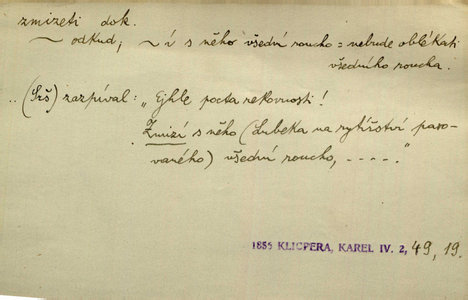 zmizeti dok.
~ odkud; ~ í s něho všední roucho = nebude oblékati
všedního roucha.
.. (Srš) zazpíval: "Ejhle pocta rekovnosti!
Zmizí s něho (Lubeka na rytířství paso-
vaného) všední roucho, -----."
1855 KLICPERA, KAREL IV. 2, 49, 19.